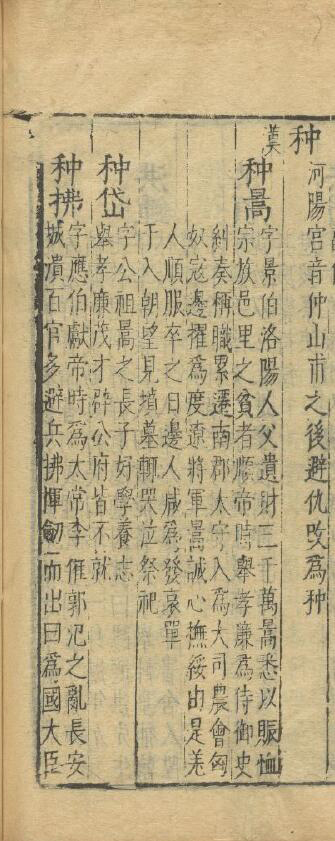 种
河陽宮音仲山甫之後避仇改為种
漢
种暠
字景伯洛陽人父遺財三千萬暠悉以賑恤
宗族邑里之貧者順帝時舉孝廉為侍御史
糾奏稱職累遷南郡太守入為大司農會匈
奴寇邊擢為度遼將軍暠誠心撫綏由是羌
人順服卒之日邊人咸為發哀單
于入朝望見墳墓輒哭泣祭祀
种岱
字公祖暠之長子好學養志
舉孝廉茂才辟公府皆不就
种拂
字應伯獻帝時為太常李傕郭汜之亂長安
城潰百官多避兵拂揮劍而出曰為國大臣